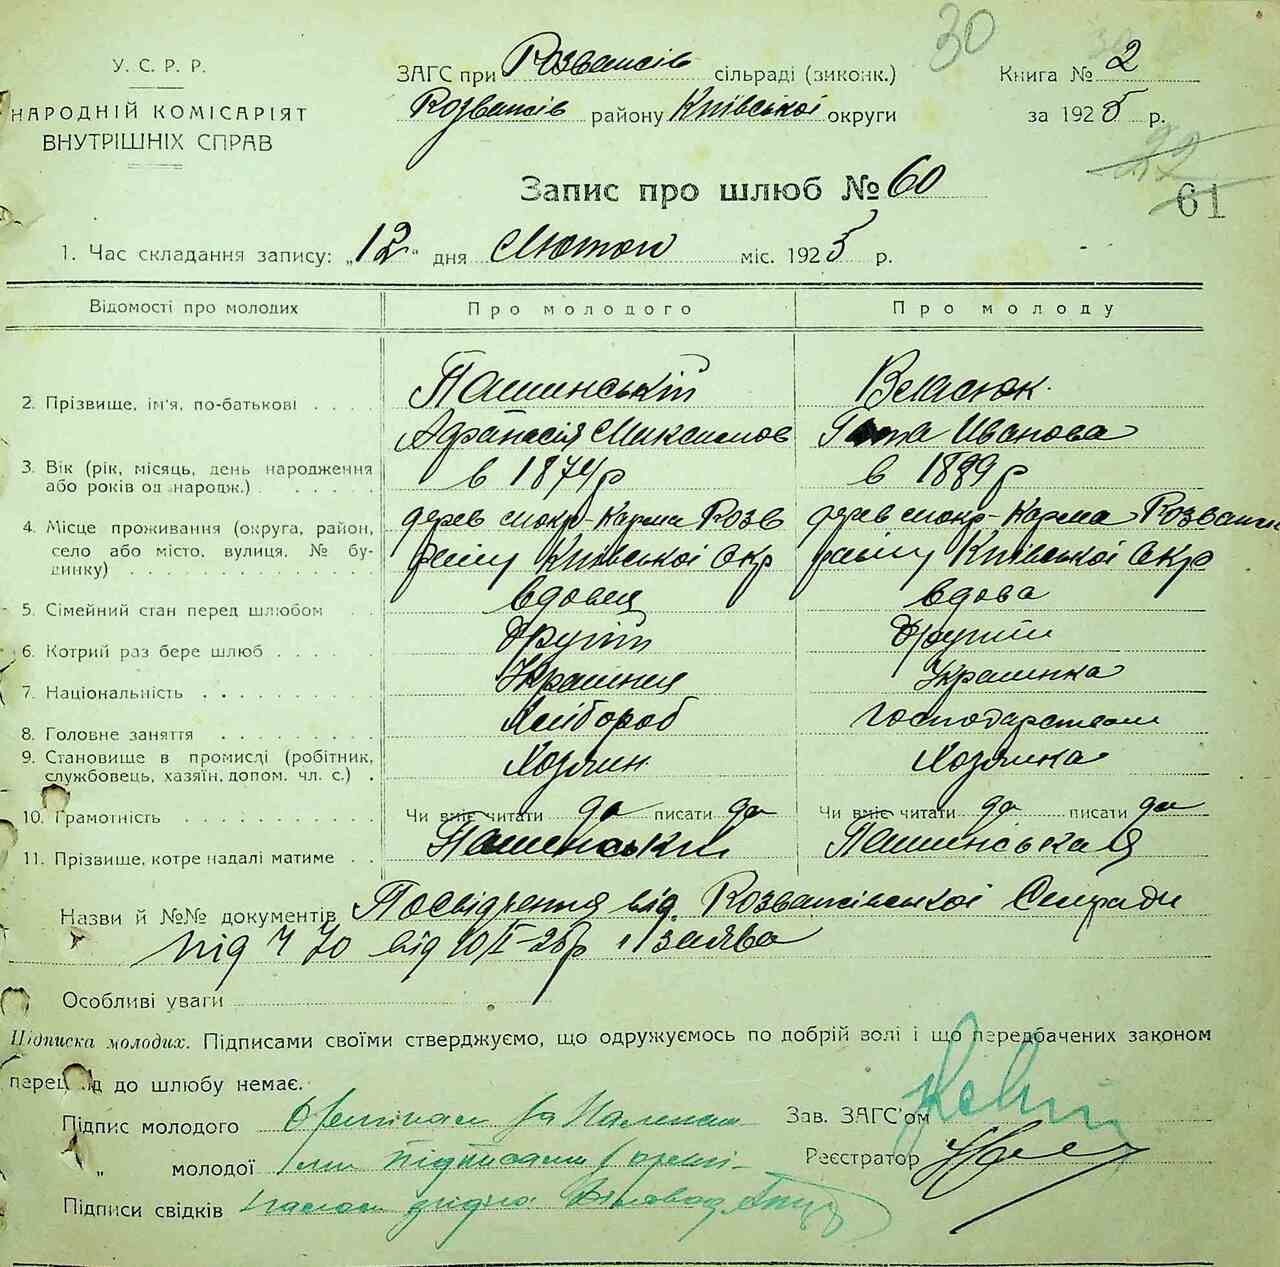 30
У. С. Р. Р.
НАРОДНІЙ КОМІСАРІЯТ
ВНУТРІШНІХ СПРАВ
ЗАГС при Розважів сільраді (виконк.)
Розважів району Київської округи
Книга № 2
за 1925 р.
Запис про шлюб № 60
61
1. Час складання запису: „12“ дня Лютого міс. 1925 р.
Відомості про молодих Про молодого Про молоду
2. Прізвище, ім'я, по-батькові Пашинській Власюк
Афанасія Максимов Иванова
3. Вік (рік, місяць, день народження або років од народж.) в 1874 р в 1889 р
4. Місце проживання (округа, район, село або місто, вулиця, № будинку) дерев мокр-Карма Розв дерев мокр-Карма Розваж
Київської Окр Київської Окр
5. Сімейний стан перед шлюбом вдовец вдова
6. Котрий раз бере шлюб Другій Другий
7. Національність Украинец Украинка
8. Головне заняття Хлібороб
9. Становище в промислі (робітник, службовець, хазяїн, допом. чл. с.) Хозяин Хозяика
10. Грамотність Чи вміє читати да писати да Чи вміє читати да писати да
11. Прізвище, котре надалі матиме Пашинський Пашинська
Назви й №№ документів Посвідчення від Розважівської Сельради
під Ч 70 від заява
Особливі уваги
Підписка молодих. Підписами своїми стверджуємо, що одружуємось по добрій волі і що передбачених законом
перешкод до шлюбу немає.
Підпис молодого
„ молодої
Підписи свідків
Зав. ЗАГС'ом
Реєстратор